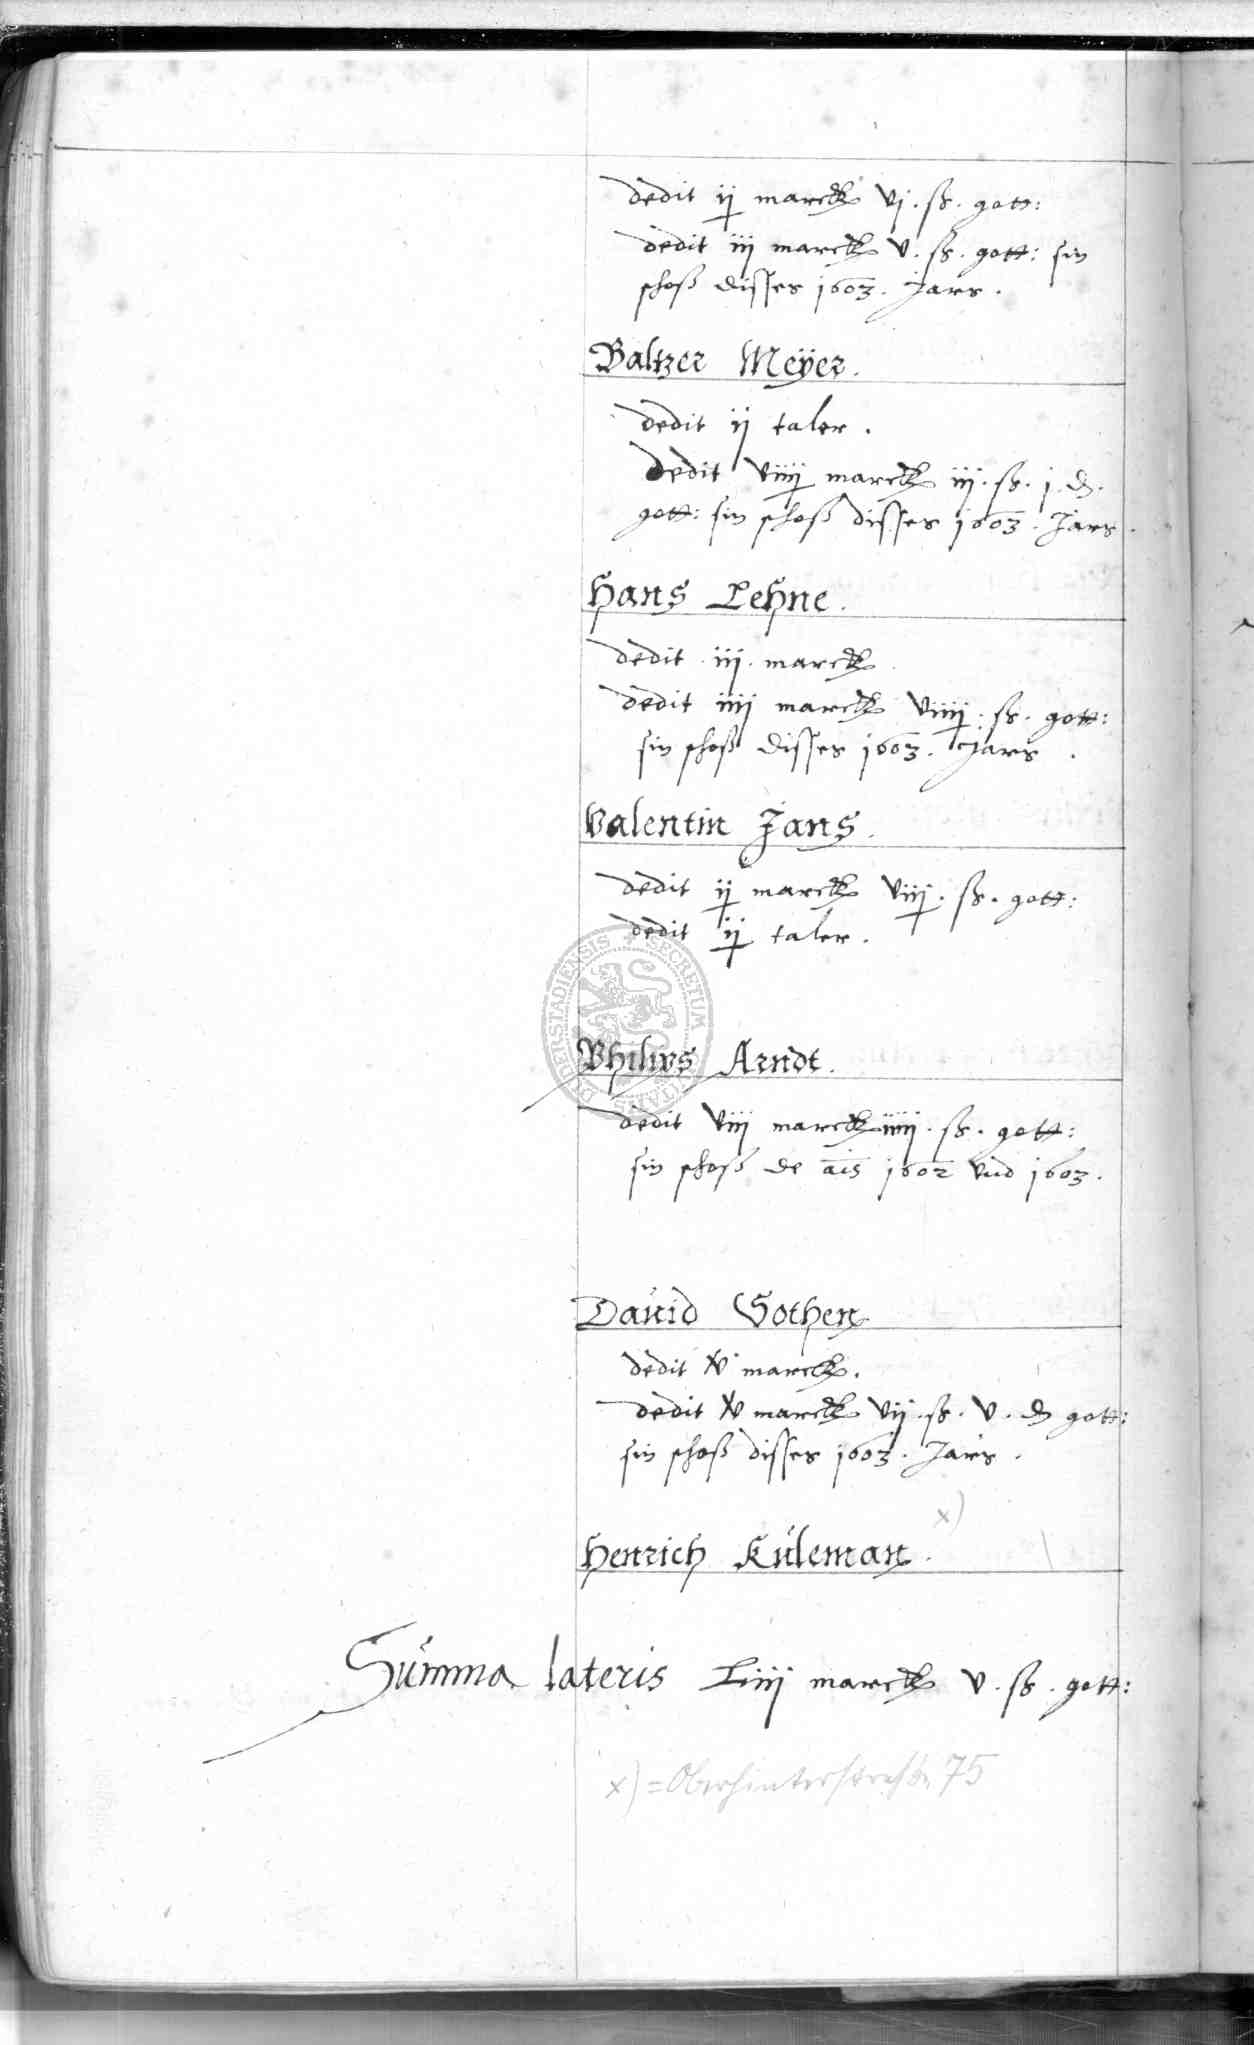 dedit ij marck vj. ß. gott:
dedit iij marck v. ß. gott: sin
schoß disses 1603. Jars.
Baltzer Meÿer.
dedit ij taler.
dedit viiij marck iij. ß. j. d.
gott: sin schoß disses 1603. Jars.
Hans Lehne.
dedit iij. marck
dedit iiij marck viiij. ß. gott:
sin schoß disses 1603. Jars.
Valentin Jans.
dedit ij marck viij. ß. gott:
dedit ij taler.
Philips Arndt.
dedit viij marck iiiij. ß. gott:
sin schoß de ais 1602 vnd 1603.
Dauid Gothen
dedit xv marck.
dedit xv marck vij. ß. v. d gott:
sin schoß disses 1603. Jars.
Henrich Kuleman. x)
Summa lateris Liiij marck v. ß. gott:
x) = Oberhinterstraße 75
SECRETUM DUDERSTADIENSIS